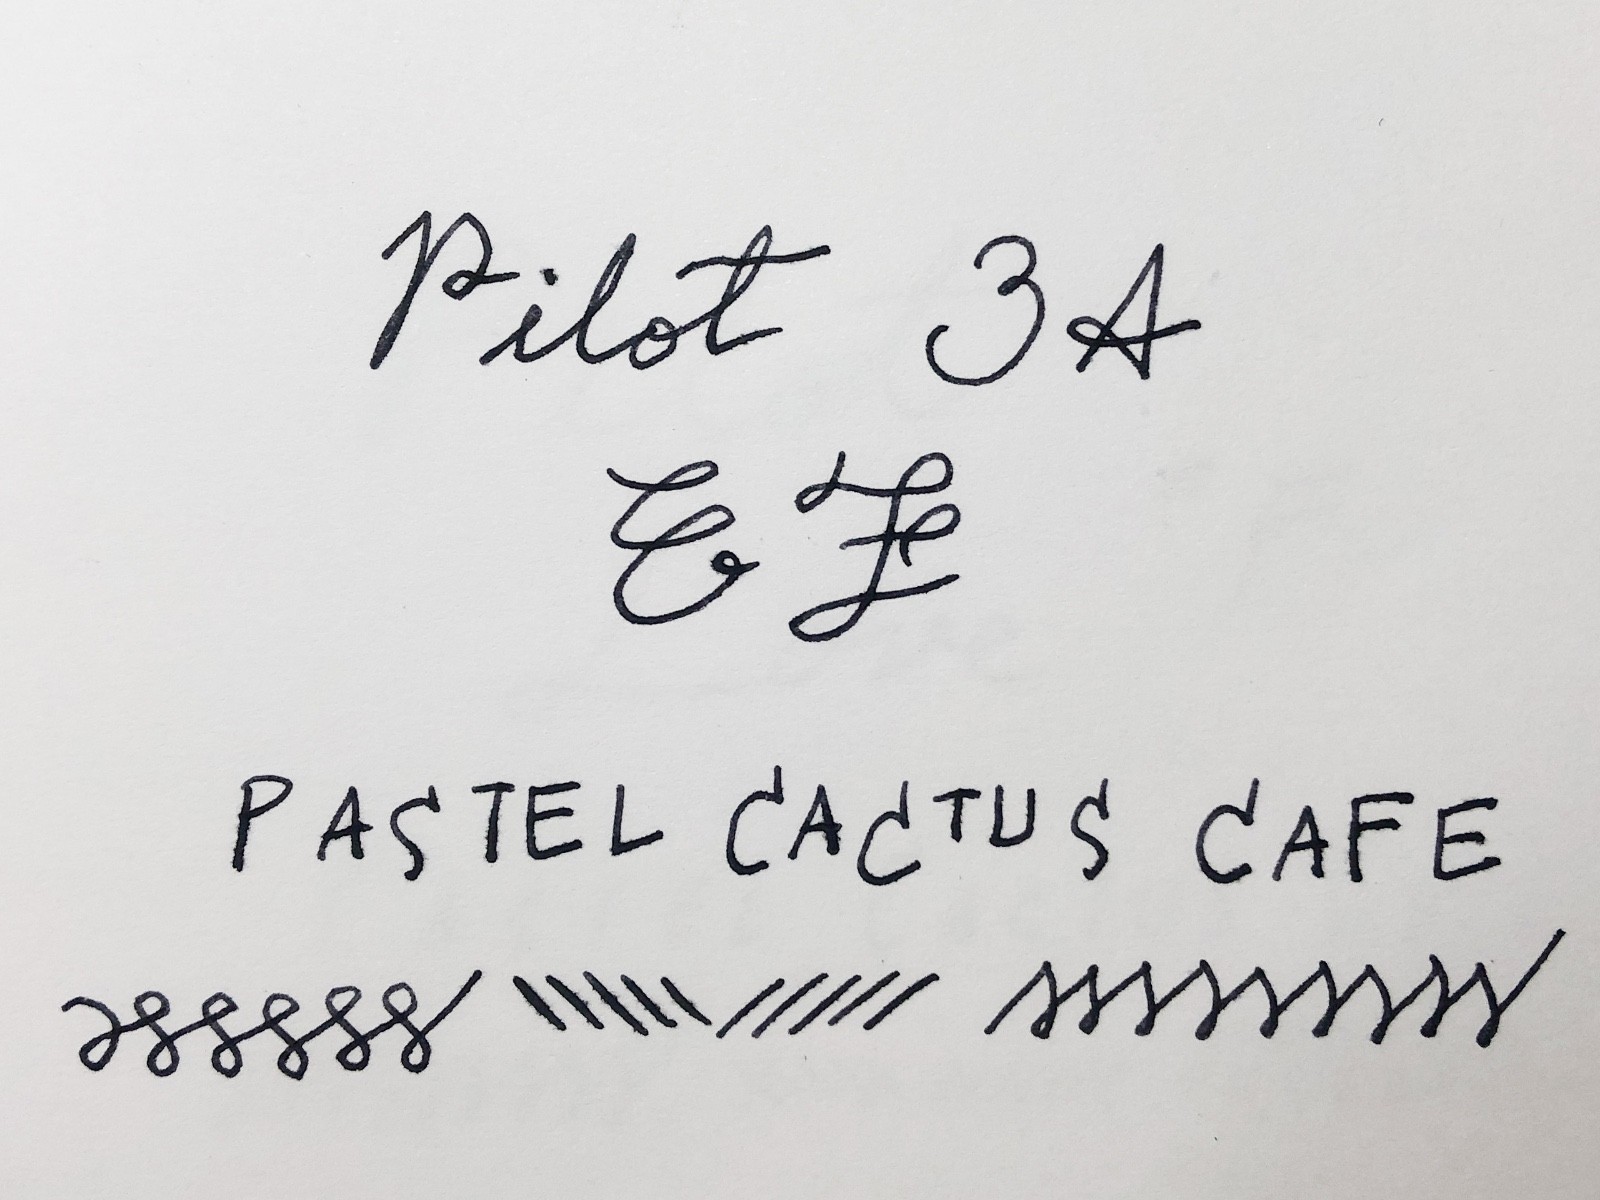 Pilot 3A
EF
PASTEL CACTUS CAFE